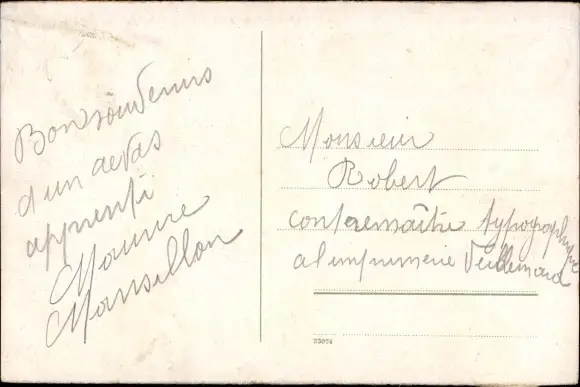 Bon souvenirs
d'un de vos
apprenti
Maurice
Mansillon
Monsieur
Robert
contremaître typographique
a l'imprimerie Veillemard
33074